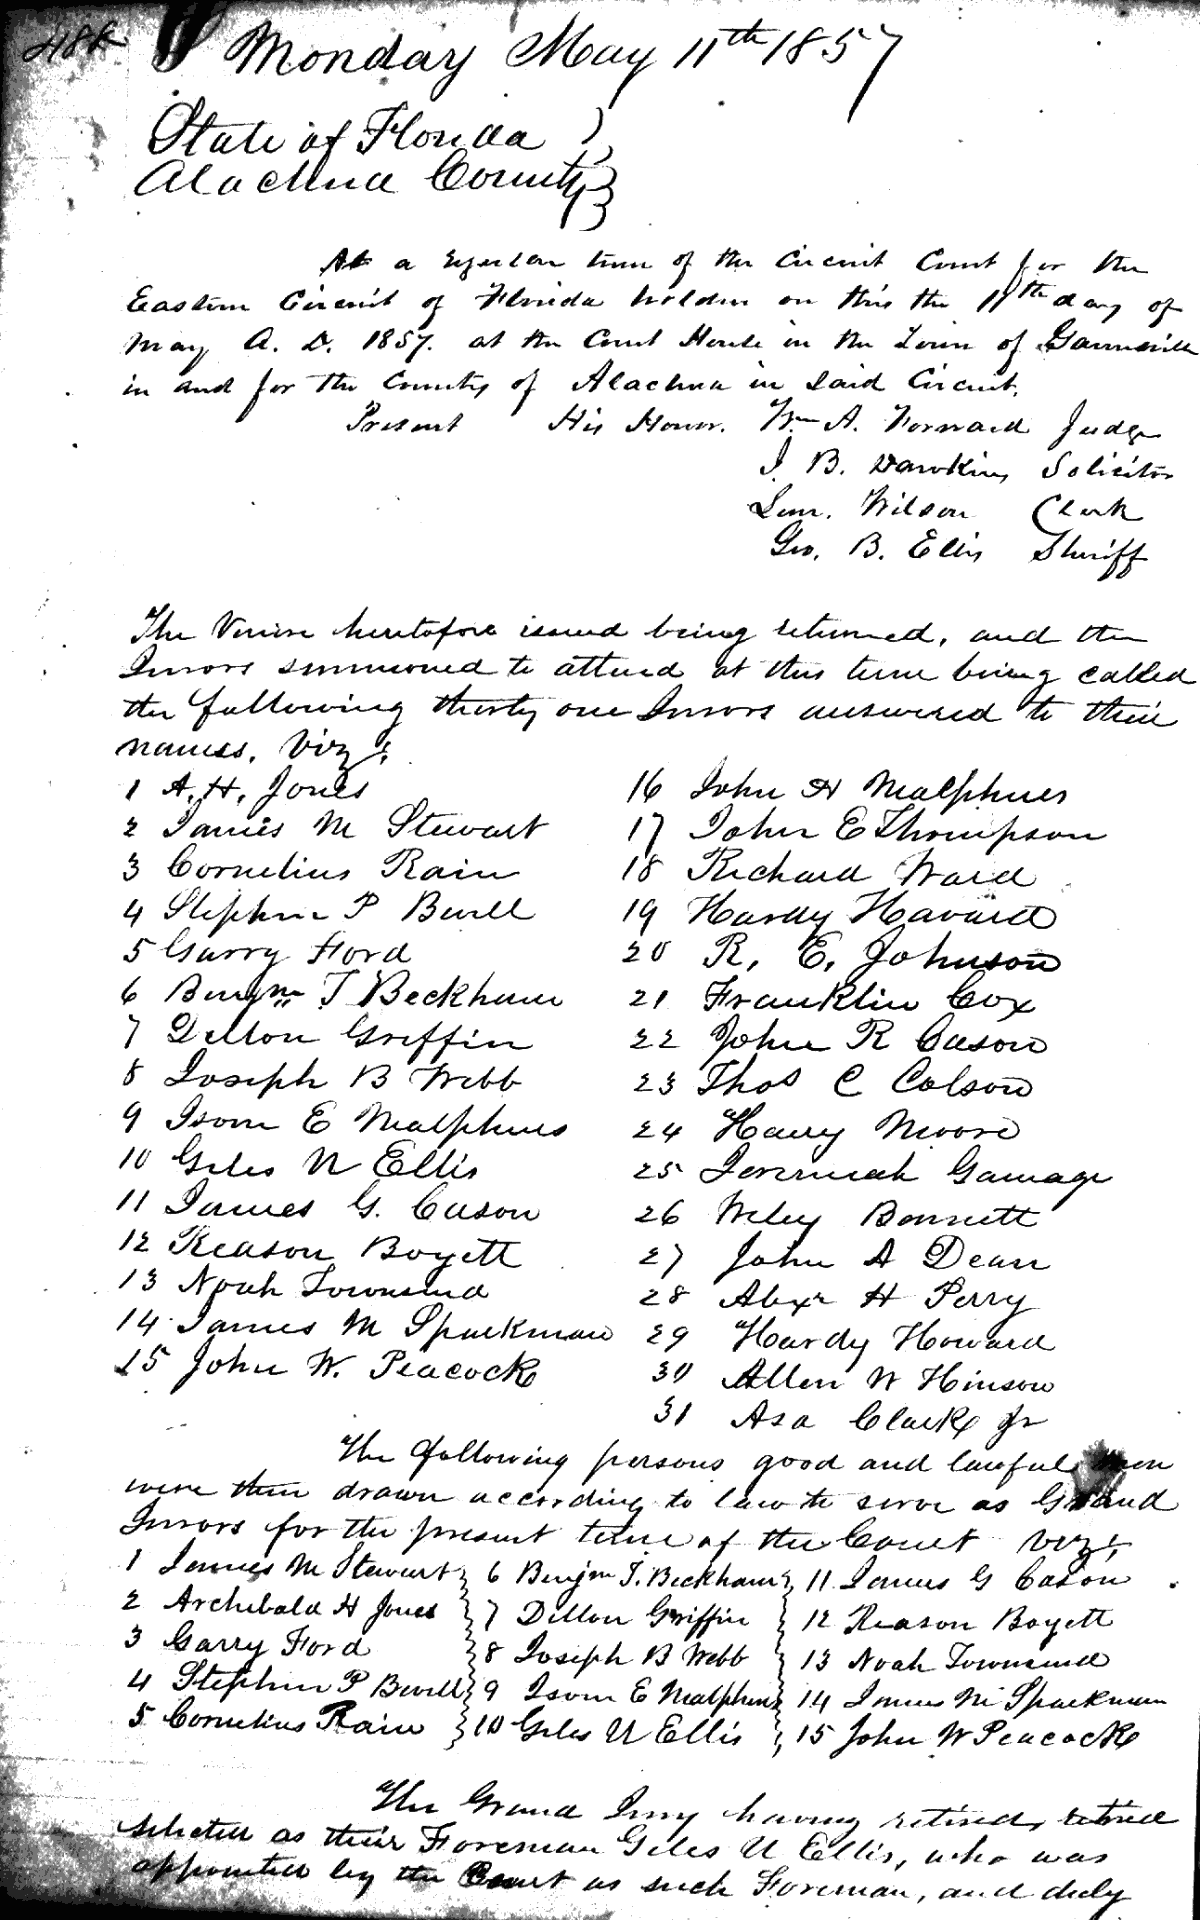 Monday May 11th 1857
State of Florida
Alachua County
At a regular term of the Circuit Court for the
Eastern Circuit of Florida holden on this the 11th day of
May A. D. 1857. at the Court House in the Town of Gainesville
in and for the County of Alachua in said Circuit.
Present His Honor. Wm A. Forward Judge
J. B. Dawkins Solicitor
Lem. Wilson Clerk
Geo. B. Ellis Sheriff
The Venire heretofore issued being returned, and the
Jurors summoned to attend at this term being called
the following thirty one Jurors answered to their
names. Viz;
1 A. H. Jones
2 James M Stewart
3 Cornelius Rain
4 Stephen P Bevill
5 Garry Ford
6 Benjmn T Beckham
7 Dillon Griffin
8 Joseph B Webb
9 Isom E Malphurs
10 Giles U Ellis
11 James G. Cason
12 Reason Boyett
13 Noah Townsend
14 James M Sparkman
15 John W. Peacock
16 John H Malphurs
17 John E Thompson
18 Richard Ward
19 Hardy Havard
20 R. E. Johnson
21 Franklin Cox
22 John R Cason
23 Thos C Colson
24 Harry Moore
25 Jeremiah Gamage
26 Wiley Bennett
27 John A Dean
28 Alexr H Perry
29 Hardy Howard
30 Allen W Hinson
31 Asa Clark Jr
The following persons good and lawful men
were then drawn according to law to serve as Grand
Jurors for the present term of the Court viz;
1 James M Stewart
2 Archibald H Jones
3 Garry Ford
4 Stephen P Bevill
5 Cornelius Rain
6 Benjmn T. Beckham
7 Dillon Griffin
8 Joseph B Webb
9 Isom E Malphurs
10 Giles U Ellis
11 James G Cason
12 Reason Boyett
13 Noah Townsend
14 James M Sparkman
15 John W Peacock
The Grand Jury having retired,
selected as their Foreman Giles U Ellis, who was
appointed by the Court as such Foreman, and duly